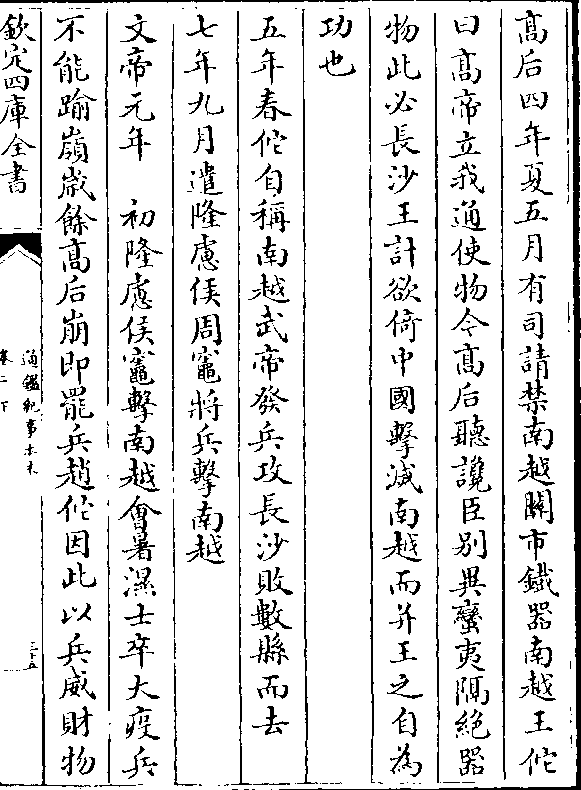 高后四年夏五月有司請禁南越關市鐵器南越王佗
曰高帝立我通使物今高后聽讒臣别異蠻夷隔絶器
物此必長沙王計欲倚中國擊滅南越而并王之自為
功也
五年春佗自稱南越武帝發兵攻長沙敗數縣而去
七年九月遣隆慮侯周竈將兵擊南越
文帝元年　初隆慮侯竈擊南越會暑濕士卒大疫兵
不能踰嶺歲餘高后崩即罷兵趙佗因此以兵威財物
欽定四庫全書
通鑑紀事本末
卷二下
三十五